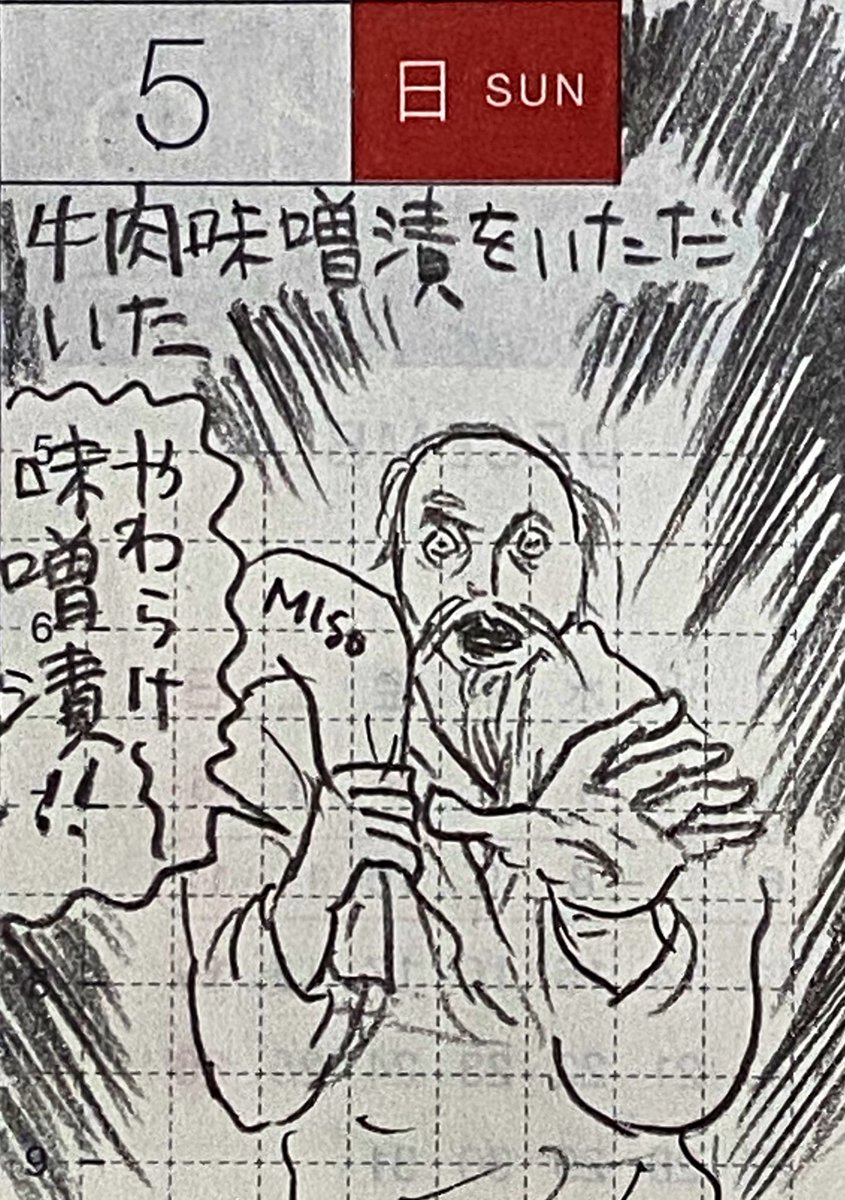 5
日 SUN
牛肉味噌漬をいただ
いた
やわらけ
味噌漬!!
MISo
5
6
9